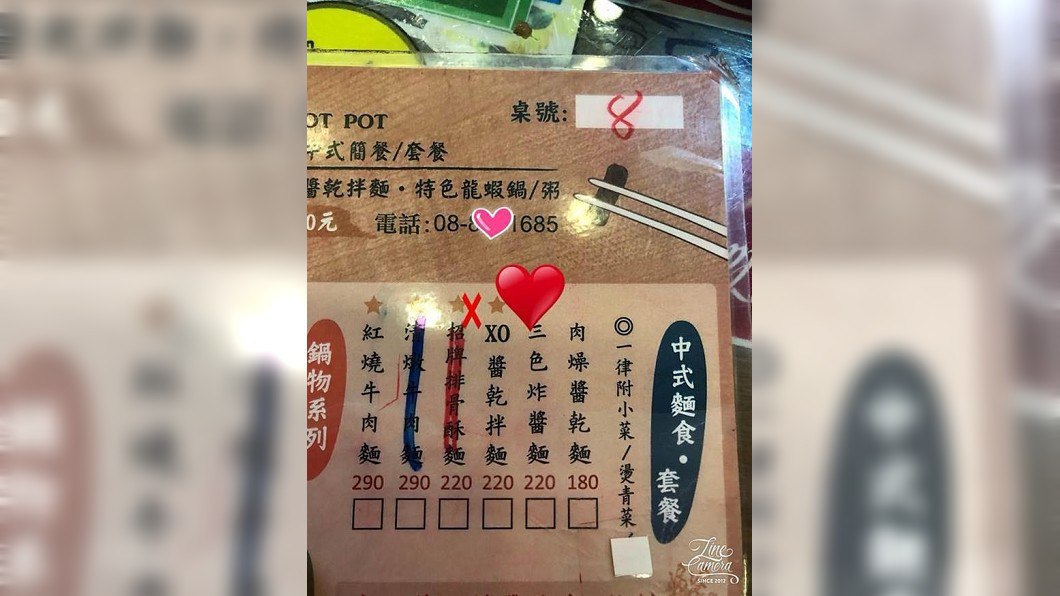 OT POT
桌號: 8
式簡餐/套餐
醬乾拌麵・特色龍蝦鍋/粥
0元
電話:08-8 1685
中式麵食・套餐
◎一律附小菜/燙青菜
肉燥醬乾麵
180
三色炸醬麵
220
XO醬乾拌麵
220
招牌排骨酥麵
220
清燉牛肉麵
290
紅燒牛肉麵
290
鍋物系列
X
Line Camera
SINCE 2012